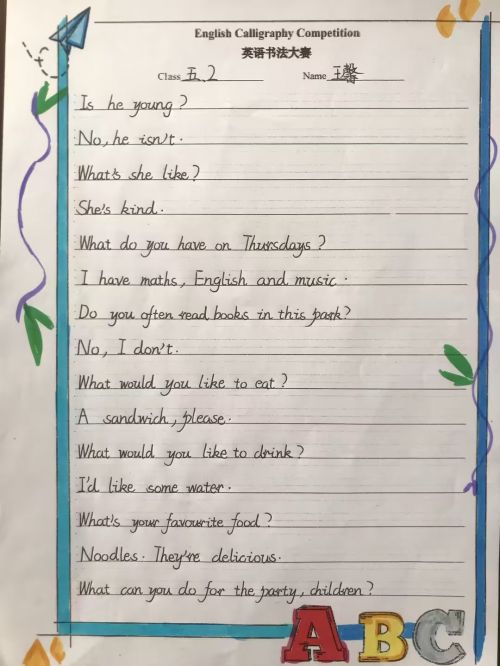 English Calligraphy Competition
英语书法大赛
Class 五.2 Name 王馨
Is he young?
No, he isn't.
What's she like?
She's kind.
What do you have on Thursdays?
I have maths, English and music.
Do you often read books in this park?
No, I don't.
What would you like to eat?
A sandwich, please.
What would you like to drink?
I'd like some water.
What's your favourite food?
Noodles. They're delicious.
What can you do for the party, children?
ABC